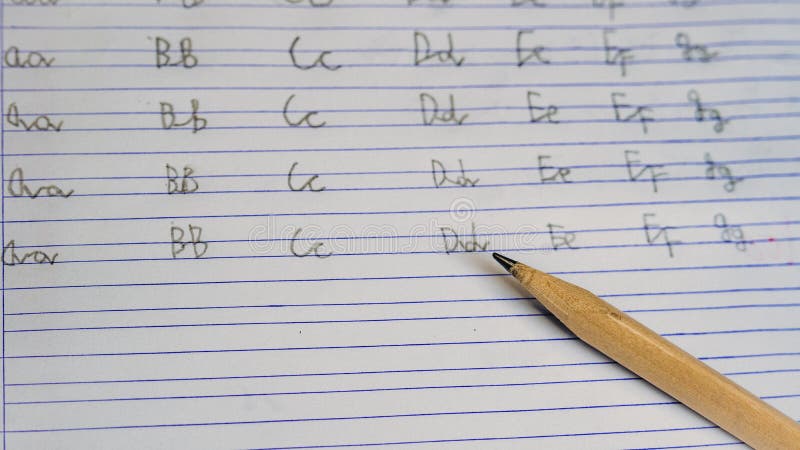 aa BB Cc Dd Ee EF gg
Aa BB Cc Dd Ee EF gg
Aa BB Cc Dd Ee EF gg
Aa BB Cc Dd Ee EF gg
dreamstime